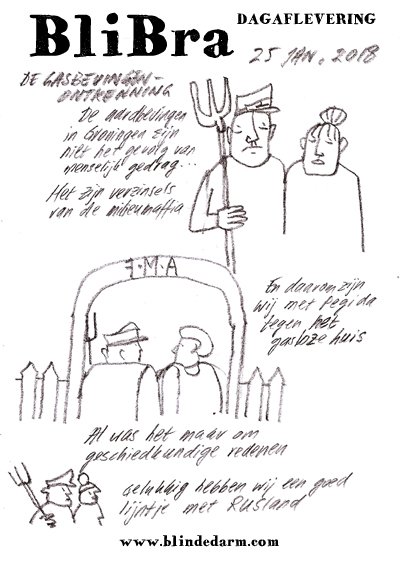 BliBra
DAGAFLEVERING
25 JAN. 2018
DE GASBEVINGEN-
ONTKENNING
De aardbevingen
in Groningen zijn
niet het gevolg van
menselijk gedrag...
Het zijn verzinsels
van de milieumaffia
J·M·A
En daarom zijn
wij met Pegida
tegen het
gasloze huis
Al was het maar om
geschiedkundige redenen
Gelukkig hebben wij een goed
lijntje met RUSland
www.blindedarm.com